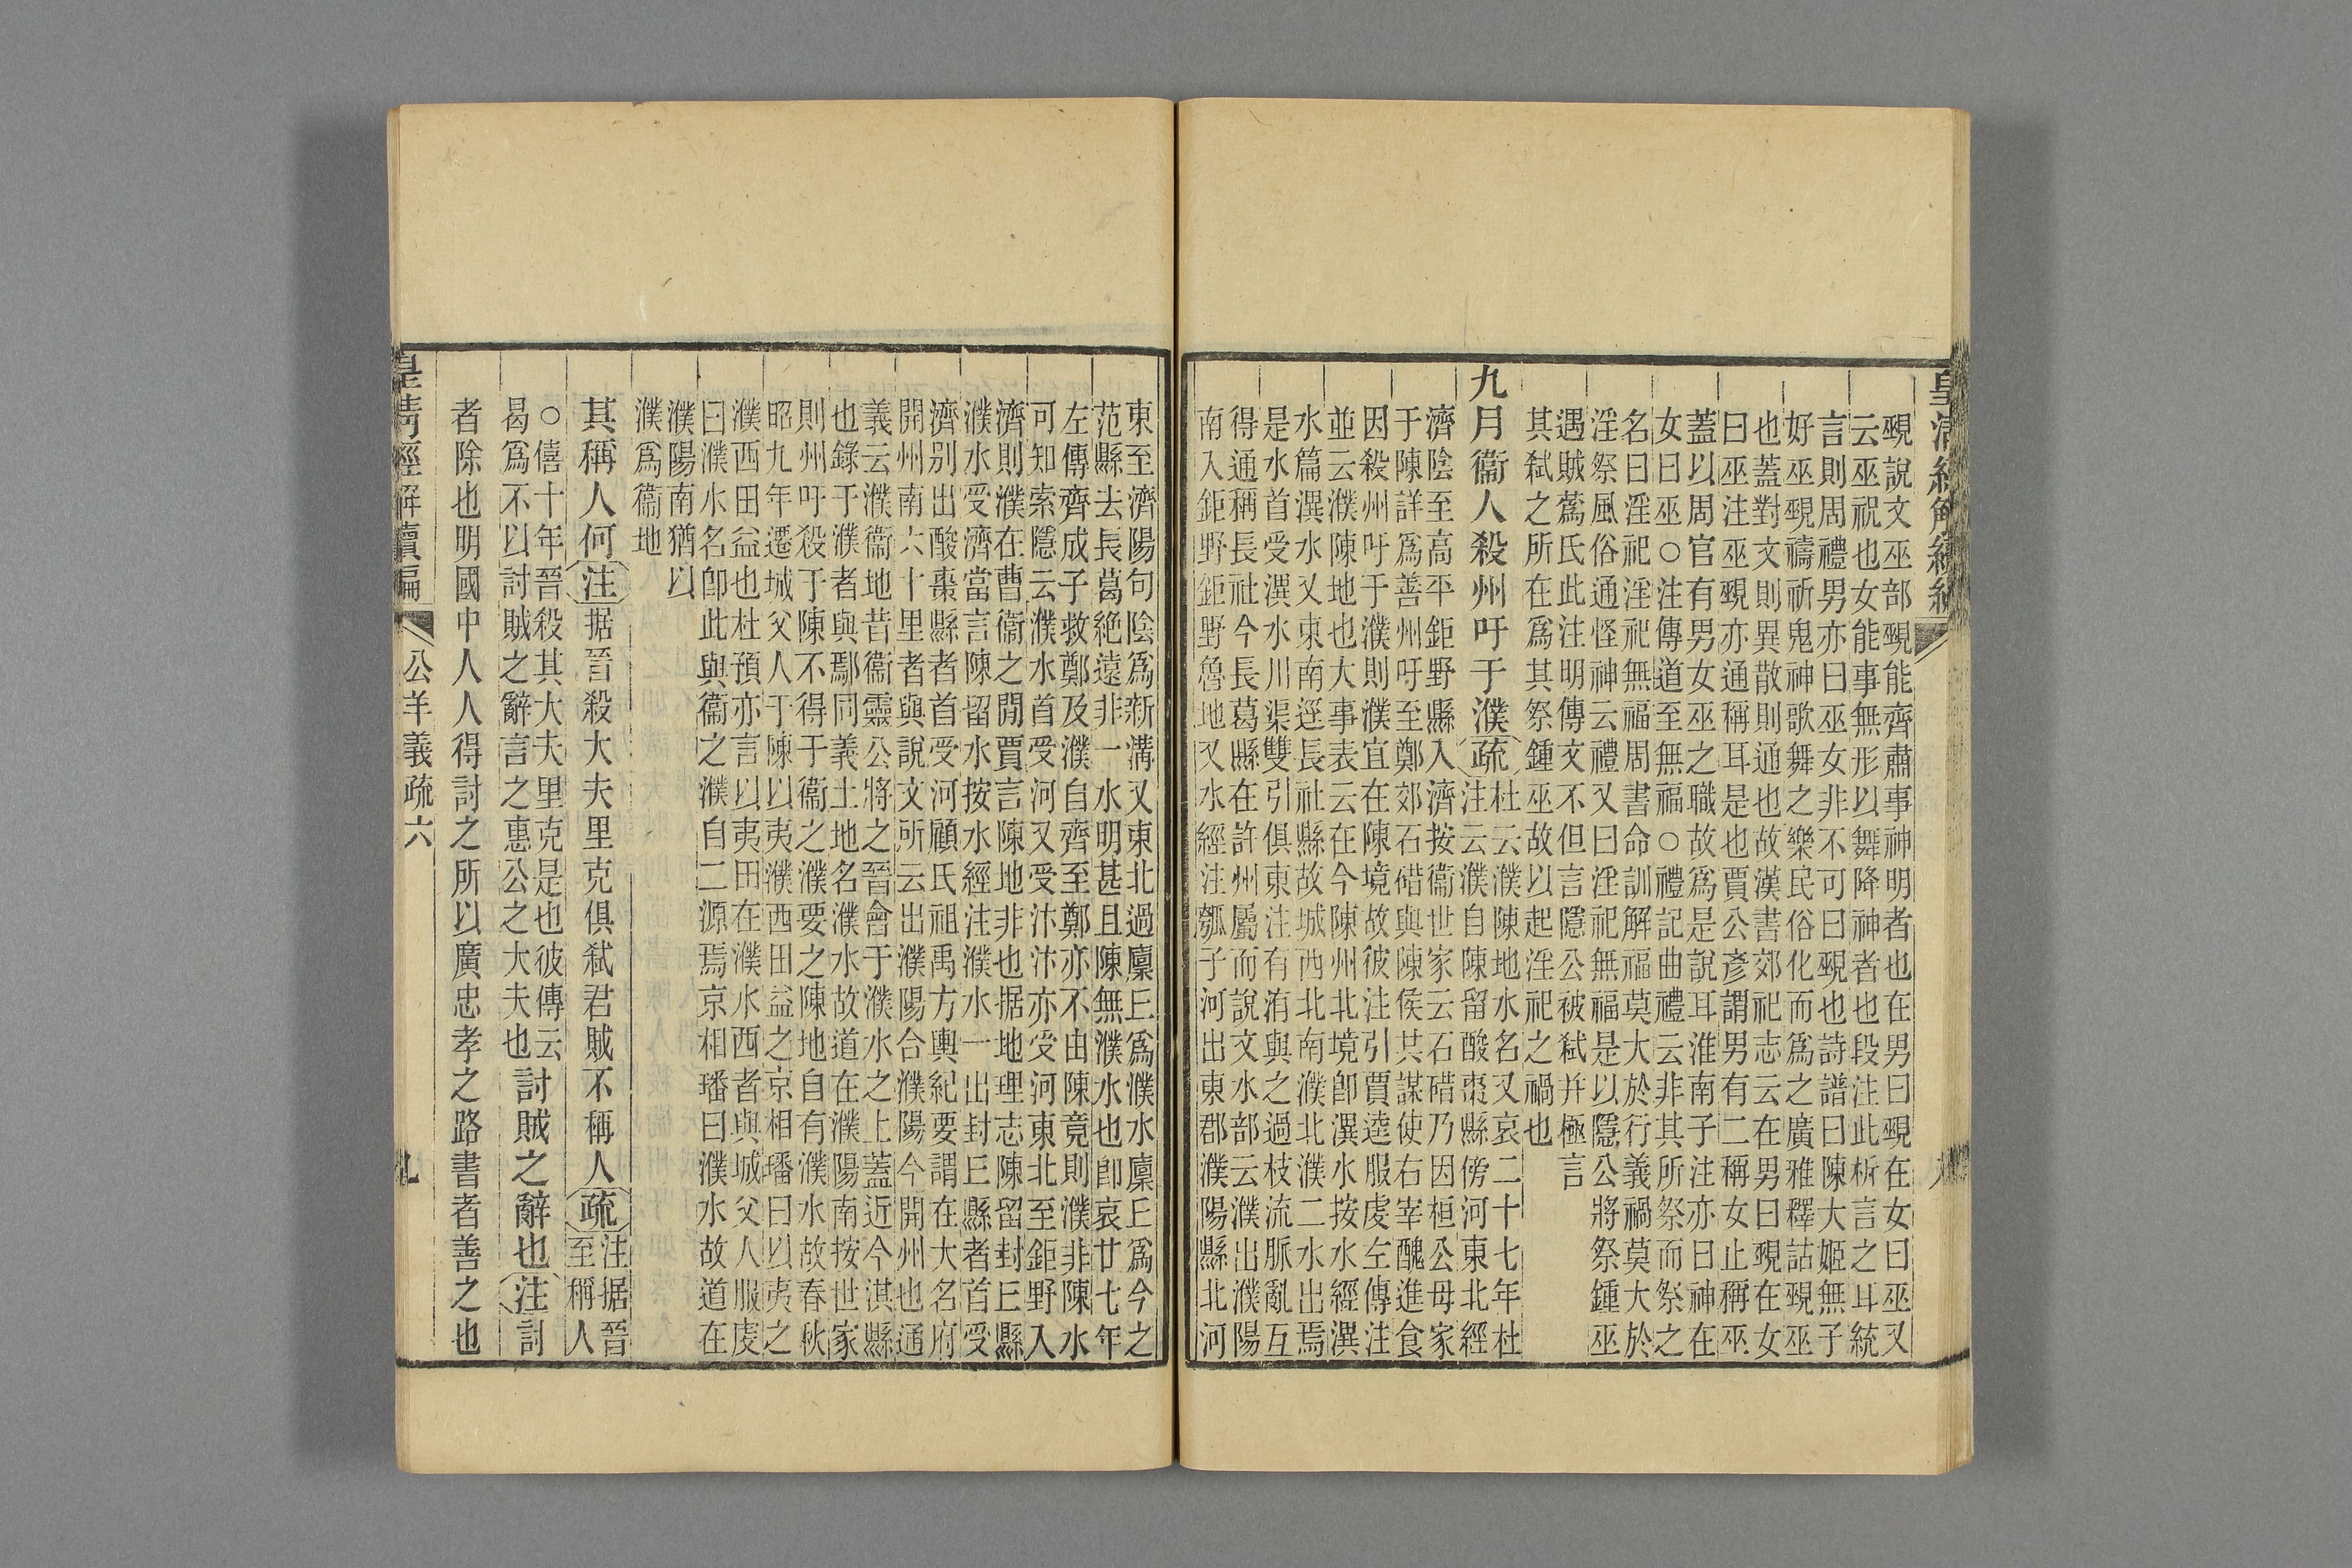 皇清經解續編
覡說文巫部覡能齊肅事神明者也在男曰覡在女曰巫又
云巫祝也女能事無形以舞降神者也段注此析言之耳統
言則周禮男亦曰巫女非不可曰覡也詩譜曰陳大姬無子
好巫覡禱祈鬼神歌舞之樂民俗化而爲之廣雅釋詁覡巫
也蓋對文則異散則通也故漢書郊祀志云在男曰覡在女
曰巫注巫覡亦通稱耳是也賈公彥謂男有二稱女止稱巫
蓋以周官有男女巫之職故爲是說耳淮南子注亦曰神在
女曰巫○注傳道至無福○禮記曲禮云非其所祭而祭之
名曰淫祀淫祀無福周書命訓解福莫大於行義禍莫大於
淫祭風俗通怪神云禮又曰淫祀無福是以隱公將祭鍾巫
遇賊蔿氏此注明傳文不但言隱公被弒并極言
其弒之所在爲其祭鍾巫故以起淫祀之禍也
九月衞人殺州吁于濮疏
杜云濮陳地水名又哀二十七年杜
注云濮自陳留酸棗縣傍河東北經
濟陰至高平鉅野縣入濟按衞世家云石碏乃因桓公母家
于陳詳爲善州吁至鄭郊石碏與陳侯共謀使右宰醜進食
因殺州吁于濮則濮宜在陳境故彼注引賈逵服虔左傳注
並云濮陳地也大事表云在今陳州北境卽潩水按水經潩
水篇潩水又東南逕長社縣故城西北南濮北濮二水出焉
是水首受潩水川渠雙引俱東注有洧與之過枝流脈亂互
得通稱長社今長葛縣在許州屬而說文水部云濮出濮陽
南入鉅野鉅野魯地又水經注瓠子河出東郡濮陽縣北河
東至濟陽句陰爲新溝又東北過廩𠀉爲濮水廩𠀉爲今之
范縣去長葛絶遠非一水明甚且陳無濮水也卽哀廿七年
左傳齊成子救鄭及濮自齊至鄭亦不由陳竟則濮非陳水
可知索隱云濮水首受河又受汴汴亦受河東北至鉅野入
濟則濮在曹衞之閒賈言陳地非也据地理志陳留封𠀉縣
濮水受濟當言陳留水按水經注濮水一出封𠀉縣者首受
濟别出酸棗縣者首受河顧氏祖禹方輿紀要謂在大名府
開州南六十里者與說文所云出濮陽合濮陽今開州也通
義云濮衞地昔衞靈公將之晉會于濮水之上蓋近今淇縣
也錄于濮者與鄢同義土地名濮水故道在濮陽南按世家
則州吁殺于陳不得于衞之濮要之陳地自有濮水故春秋
昭九年遷城父人于陳以夷濮西田益之京相璠曰以夷之
濮西田益也杜預亦言以夷田在濮水西者與城父人服虔
曰濮水名卽此與衞之濮自二源焉京相璠曰濮水故道在
濮陽南猶以
濮爲衞地
其稱人何注据晉殺大夫里克俱弒君賊不稱人疏
注据晉
至稱人
○僖十年晉殺其大夫里克是也彼傳云
曷爲不以討賊之辭言之惠公之大夫也
討賊之辭也注討
者除也明國中人人得討之所以廣忠孝之路書者善之也
皇清經解續編
公羊義疏六
九